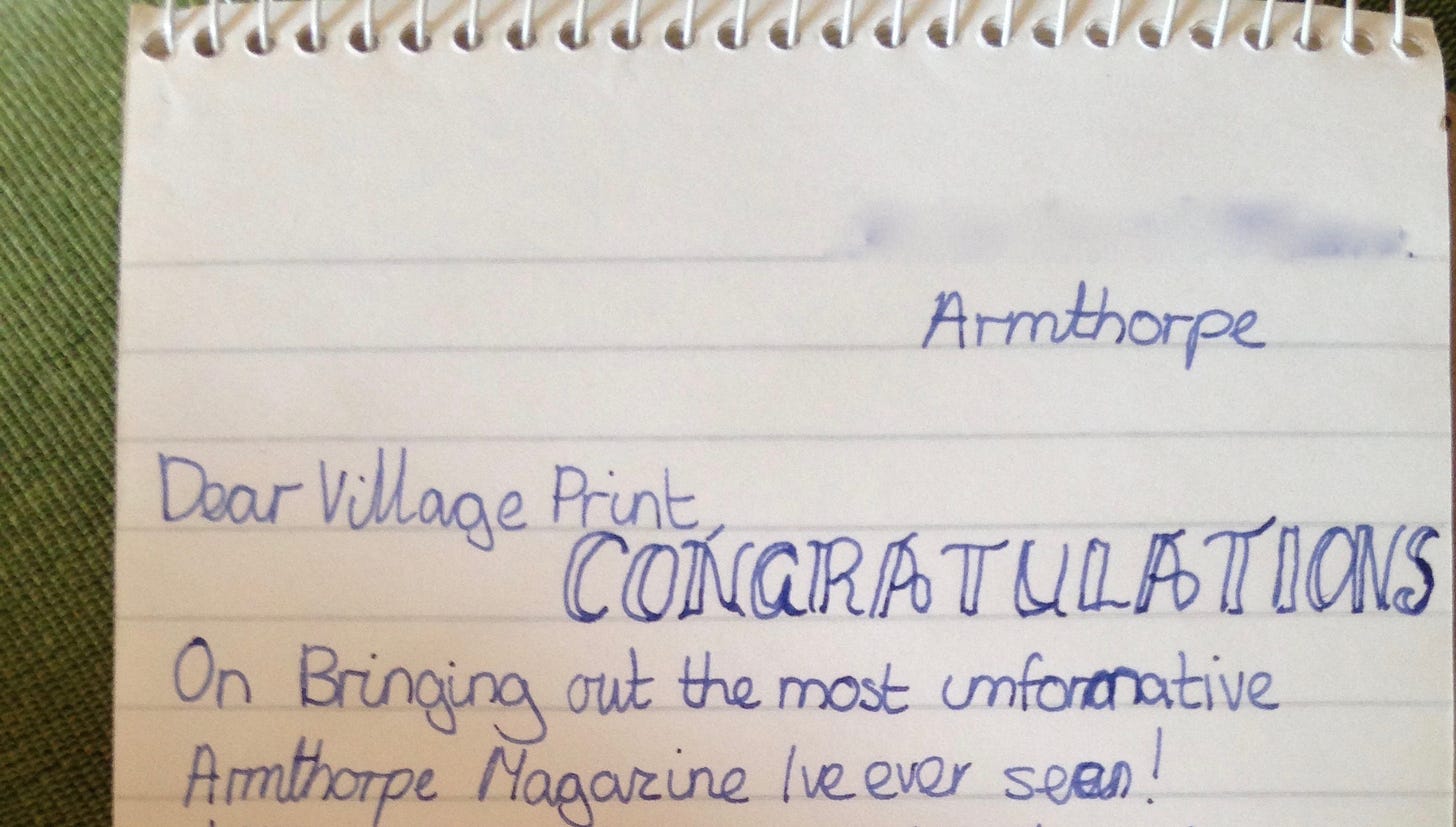 Armthorpe
Dear Village Print,
CONGRATULATIONS
On Bringing out the most imformative
Armthorpe Magazine I've ever seen!